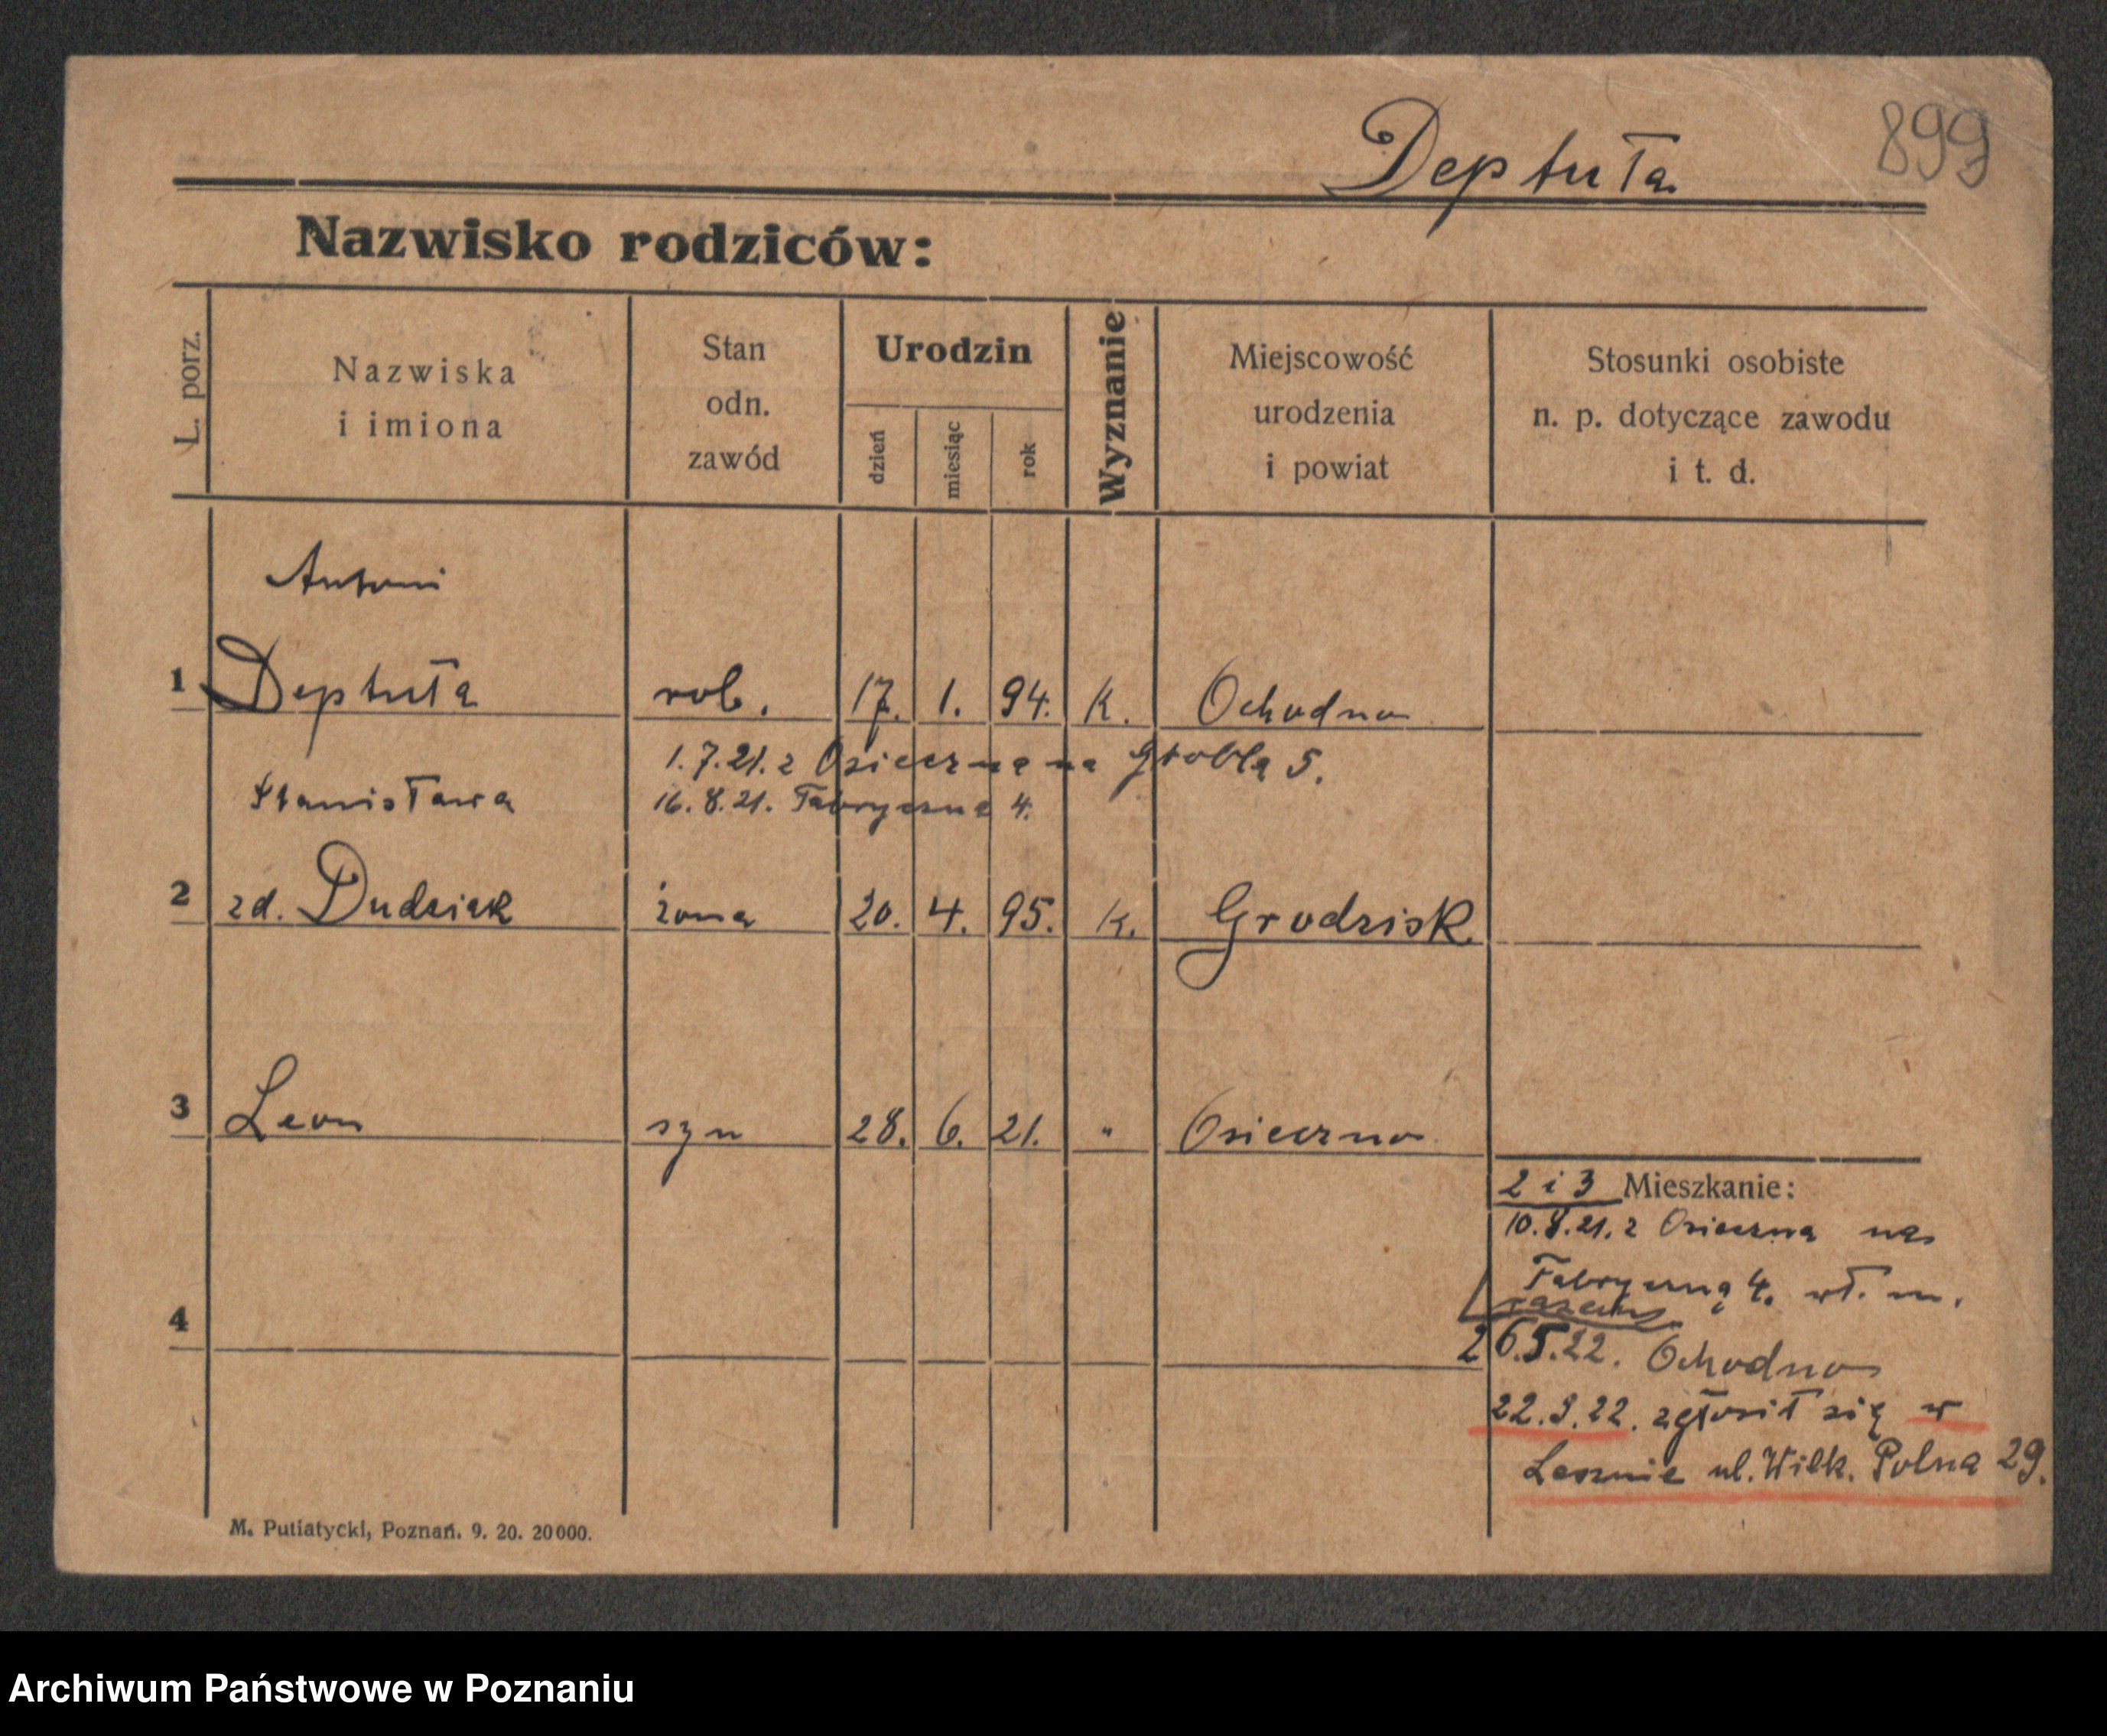 899
Deptuła
Nazwisko rodziców:
L. porz.
Nazwiska
i imiona
Stan
odn.
zawód
Urodzin
dzień
miesiąc
rok
Wyznanie
Miejscowość
urodzenia
i powiat
Stosunki osobiste
n. p. dotyczące zawodu
i t. d.
Antoni
1 Deptuła rob. 17. 1. 94. K. Ochodno
1.7.21. z Osieczna na Groblą 5.
Stanisława 16.8.21. Fabryczna 4.
2 zd. Dudziak żona 20. 4. 95. K. Grodzisk
3 Leon syn 28. 6. 21. " Osieczno
2 i 3 Mieszkanie:
10.8.21. z Osieczna na
Fabryczną 4. wł. m.
razem
4
26.5.22. Ochodno
22.9.22. zgłosił się w
Lesznie ul. Wilk. Polna 29.
M. Putiatycki, Poznań. 9. 20. 20000.
Archiwum Państwowe w Poznaniu